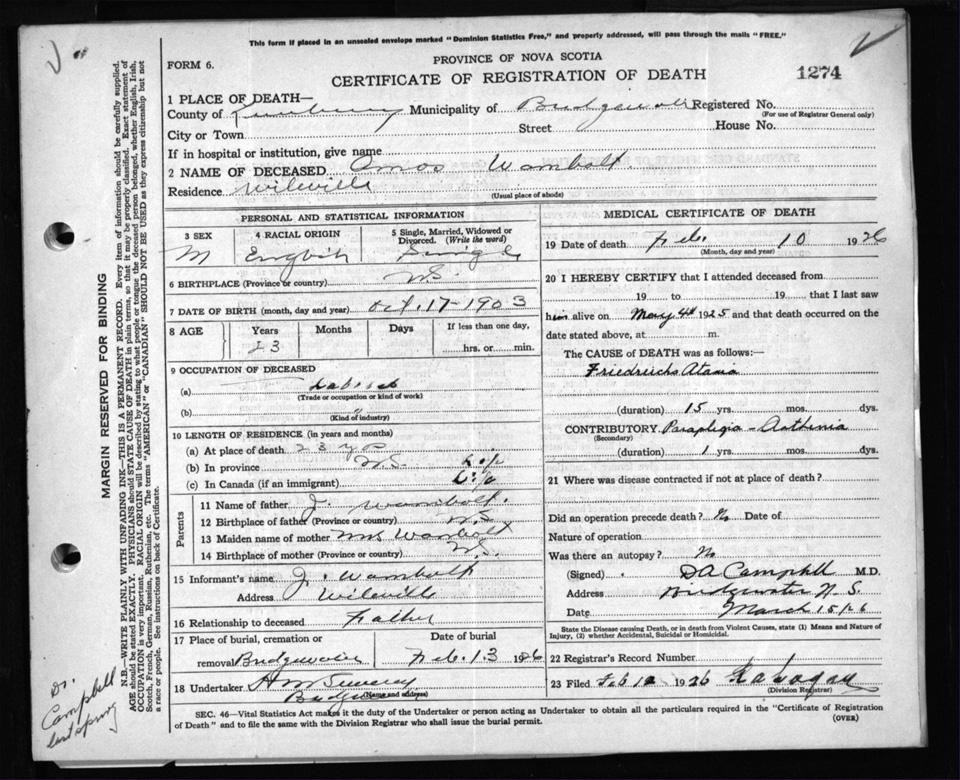 This form if placed in an unsealed envelope marked "Dominion Statistics Free," and properly addressed, will pass through the mails "FREE."
FORM 6.
PROVINCE OF NOVA SCOTIA
CERTIFICATE OF REGISTRATION OF DEATH
1274
1 PLACE OF DEATH—
County of Lunenburg Municipality of Bridgewater Registered No.
(For use of Registrar General only)
City or Town Street House No.
If in hospital or institution, give name
2 NAME OF DECEASED Amos Wambolt
Residence Wileville
(Usual place of abode)
PERSONAL AND STATISTICAL INFORMATION
3 SEX
M
4 RACIAL ORIGIN
English
5 Single, Married, Widowed or Divorced. (Write the word)
Single
6 BIRTHPLACE (Province or country) N.S.
7 DATE OF BIRTH (month, day and year) Oct. 17-1903
8 AGE Years Months Days If less than one day,
23 hrs. or min.
9 OCCUPATION OF DECEASED
(a)
(Trade or occupation or kind of work)
(b) "
(Kind of industry)
10 LENGTH OF RESIDENCE (in years and months)
(a) At place of death 23 yrs
(b) In province N.S.
(c) In Canada (if an immigrant)
Parents
11 Name of father J. Wambolt.
12 Birthplace of father (Province or country) N.S
13 Maiden name of mother Mrs Wambolt
14 Birthplace of mother (Province or country) N.S.
15 Informant's name J. Wambolt
Address Wileville
16 Relationship to deceased Father
17 Place of burial, cremation or removal Bridgewater
Date of burial
Feb. 13 1926
18 Undertaker
(Name and address)
MEDICAL CERTIFICATE OF DEATH
19 Date of death Feb. 10 1926
(Month, day and year)
20 I HEREBY CERTIFY that I attended deceased from
19 to 19 that I last saw
him alive on May 4th 1925 and that death occurred on the
date stated above, at m.
The CAUSE of DEATH was as follows:—
Friedreichs Ataxia
(duration) 15 yrs. mos. dys.
CONTRIBUTORY Paraplegia - Asthenia
(Secondary)
(duration) 1 yrs. mos. dys.
21 Where was disease contracted if not at place of death?
Did an operation precede death? No Date of
Nature of operation
Was there an autopsy? No
(Signed) DA Campbell M.D.
Address Bridgewater N.S.
Date March 15/26
State the Disease causing Death, or in death from Violent Causes, state (1) Means and Nature of
Injury, (2) whether Accidental, Suicidal or Homicidal.
22 Registrar's Record Number 1
23 Filed Feb 1926
(Division Registrar)
SEC. 46—Vital Statistics Act makes it the duty of the Undertaker or person acting as Undertaker to obtain all the particulars required in the "Certificate of Registration
of Death" and to file the same with the Division Registrar who shall issue the burial permit.
(OVER)
MARGIN RESERVED FOR BINDING
N.B.—WRITE PLAINLY WITH UNFADING INK—THIS IS A PERMANENT RECORD. Every item of information should be carefully supplied.
AGE should be stated EXACTLY. PHYSICIANS should STATE CAUSE OF DEATH in plain terms, so that it may be properly classified. Exact statement of
OCCUPATION is very important. RACIAL ORIGIN will be described by stating to what people or tongue the deceased person belonged, whether English, Irish,
Scotch, French, German, Russian, Ruthenian, etc. The terms "AMERICAN" or "CANADIAN" SHOULD NOT BE USED as they express citizenship but not
a race or people. See instructions on back of Certificate.
Dr.
Campbell
last spring